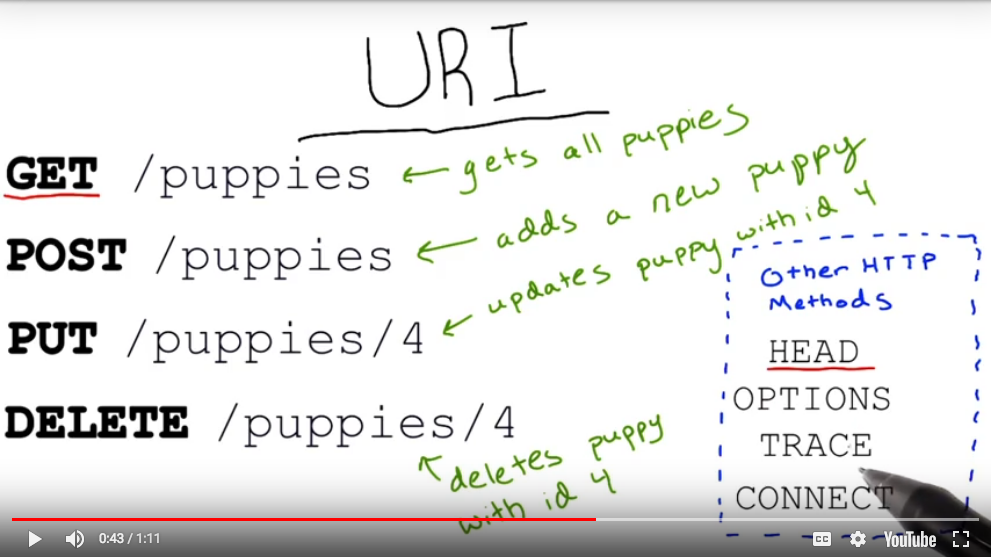 URI
GET /puppies ← gets all puppies
POST /puppies ← adds a new puppy
PUT /puppies/4 ← updates puppy with id 4
DELETE /puppies/4
deletes puppy
with id 4
Other HTTP
Methods
HEAD
OPTIONS
TRACE
CONNECT
0:43 / 1:11
CC
YouTube